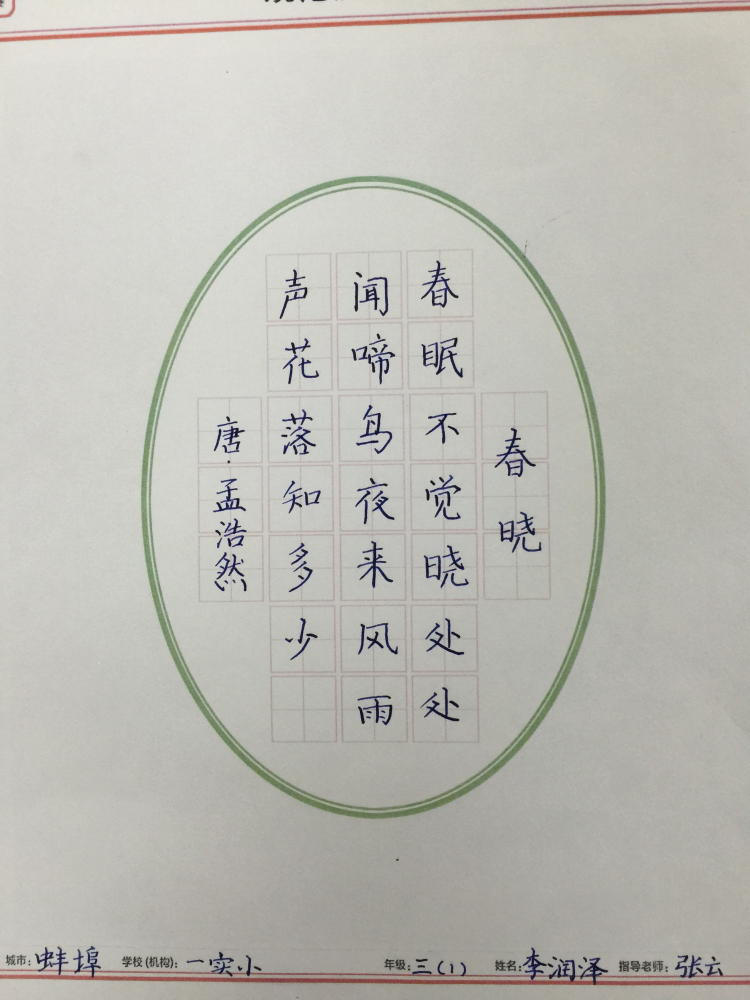 春晓
春眠不觉晓处处
闻啼鸟夜来风雨
声花落知多少
唐·孟浩然
城市：蚌埠 学校(机构)：一实小 年级：三(1) 姓名：李润泽 指导老师：张云